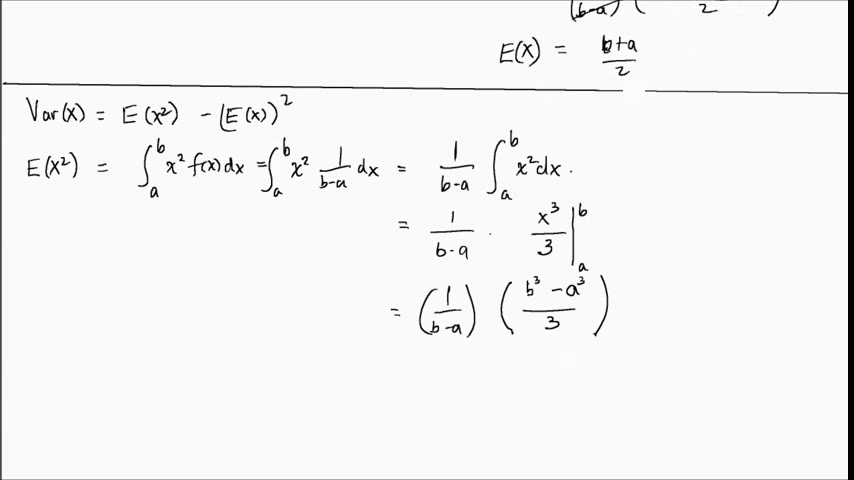 (b-a) ( 2 )
E(X) = b+a/2
Var(X) = E(X²) - (E(X))²
E(X²) = ∫_a^b x² f(x) dx = ∫_a^b x² 1/(b-a) dx = 1/(b-a) ∫_a^b x² dx.
= 1/(b-a) · x³/3 |_a^b
= (1/(b-a)) ((b³ - a³)/3)